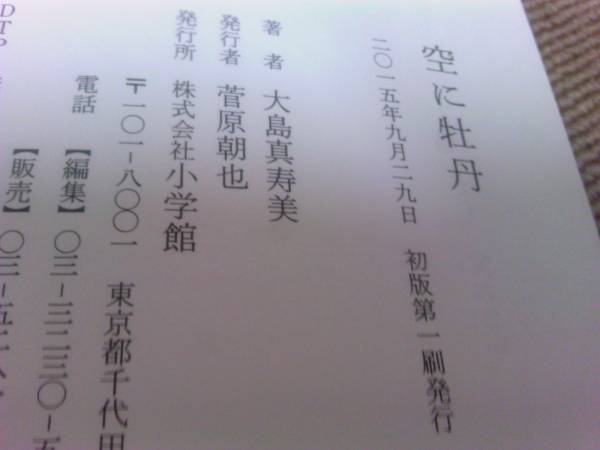 空に牡丹
二〇一五年九月二九日　初版第一刷発行
著者　大島真寿美
発行者　菅原朝也
発行所　株式会社小学館
〒一〇一-八〇〇一　東京都千代田
電話　【編集】〇三-三二三〇-五
【販売】〇三-五二八
DTP